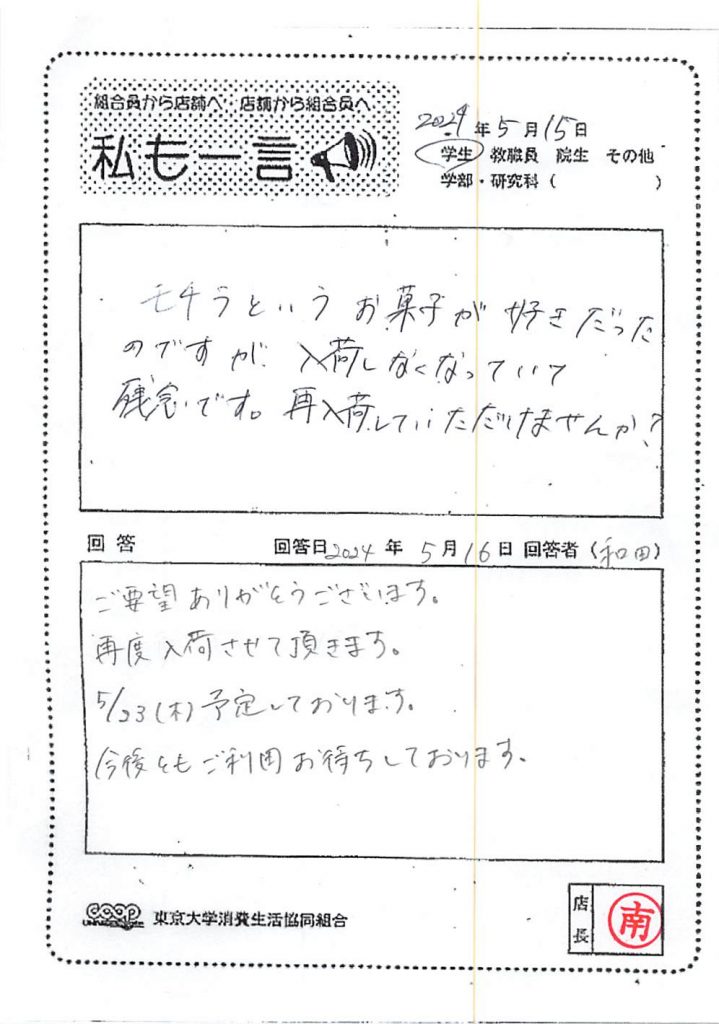 組合員から店舗へ 店舗から組合員へ
私も一言
2024年5月15日
学生 教職員 院生 その他
学部・研究科( )
モチうというお菓子が好きだった
のですが、入荷しなくなっていて
残念です。再入荷していただけませんか?
回答 回答日2024年5月16日 回答者(和田)
ご要望ありがとうございます。
再度入荷させて頂きます。
5/23(木)予定しております。
今後ともご利用お待ちしております。
coop 東京大学消費生活協同組合
店長 南